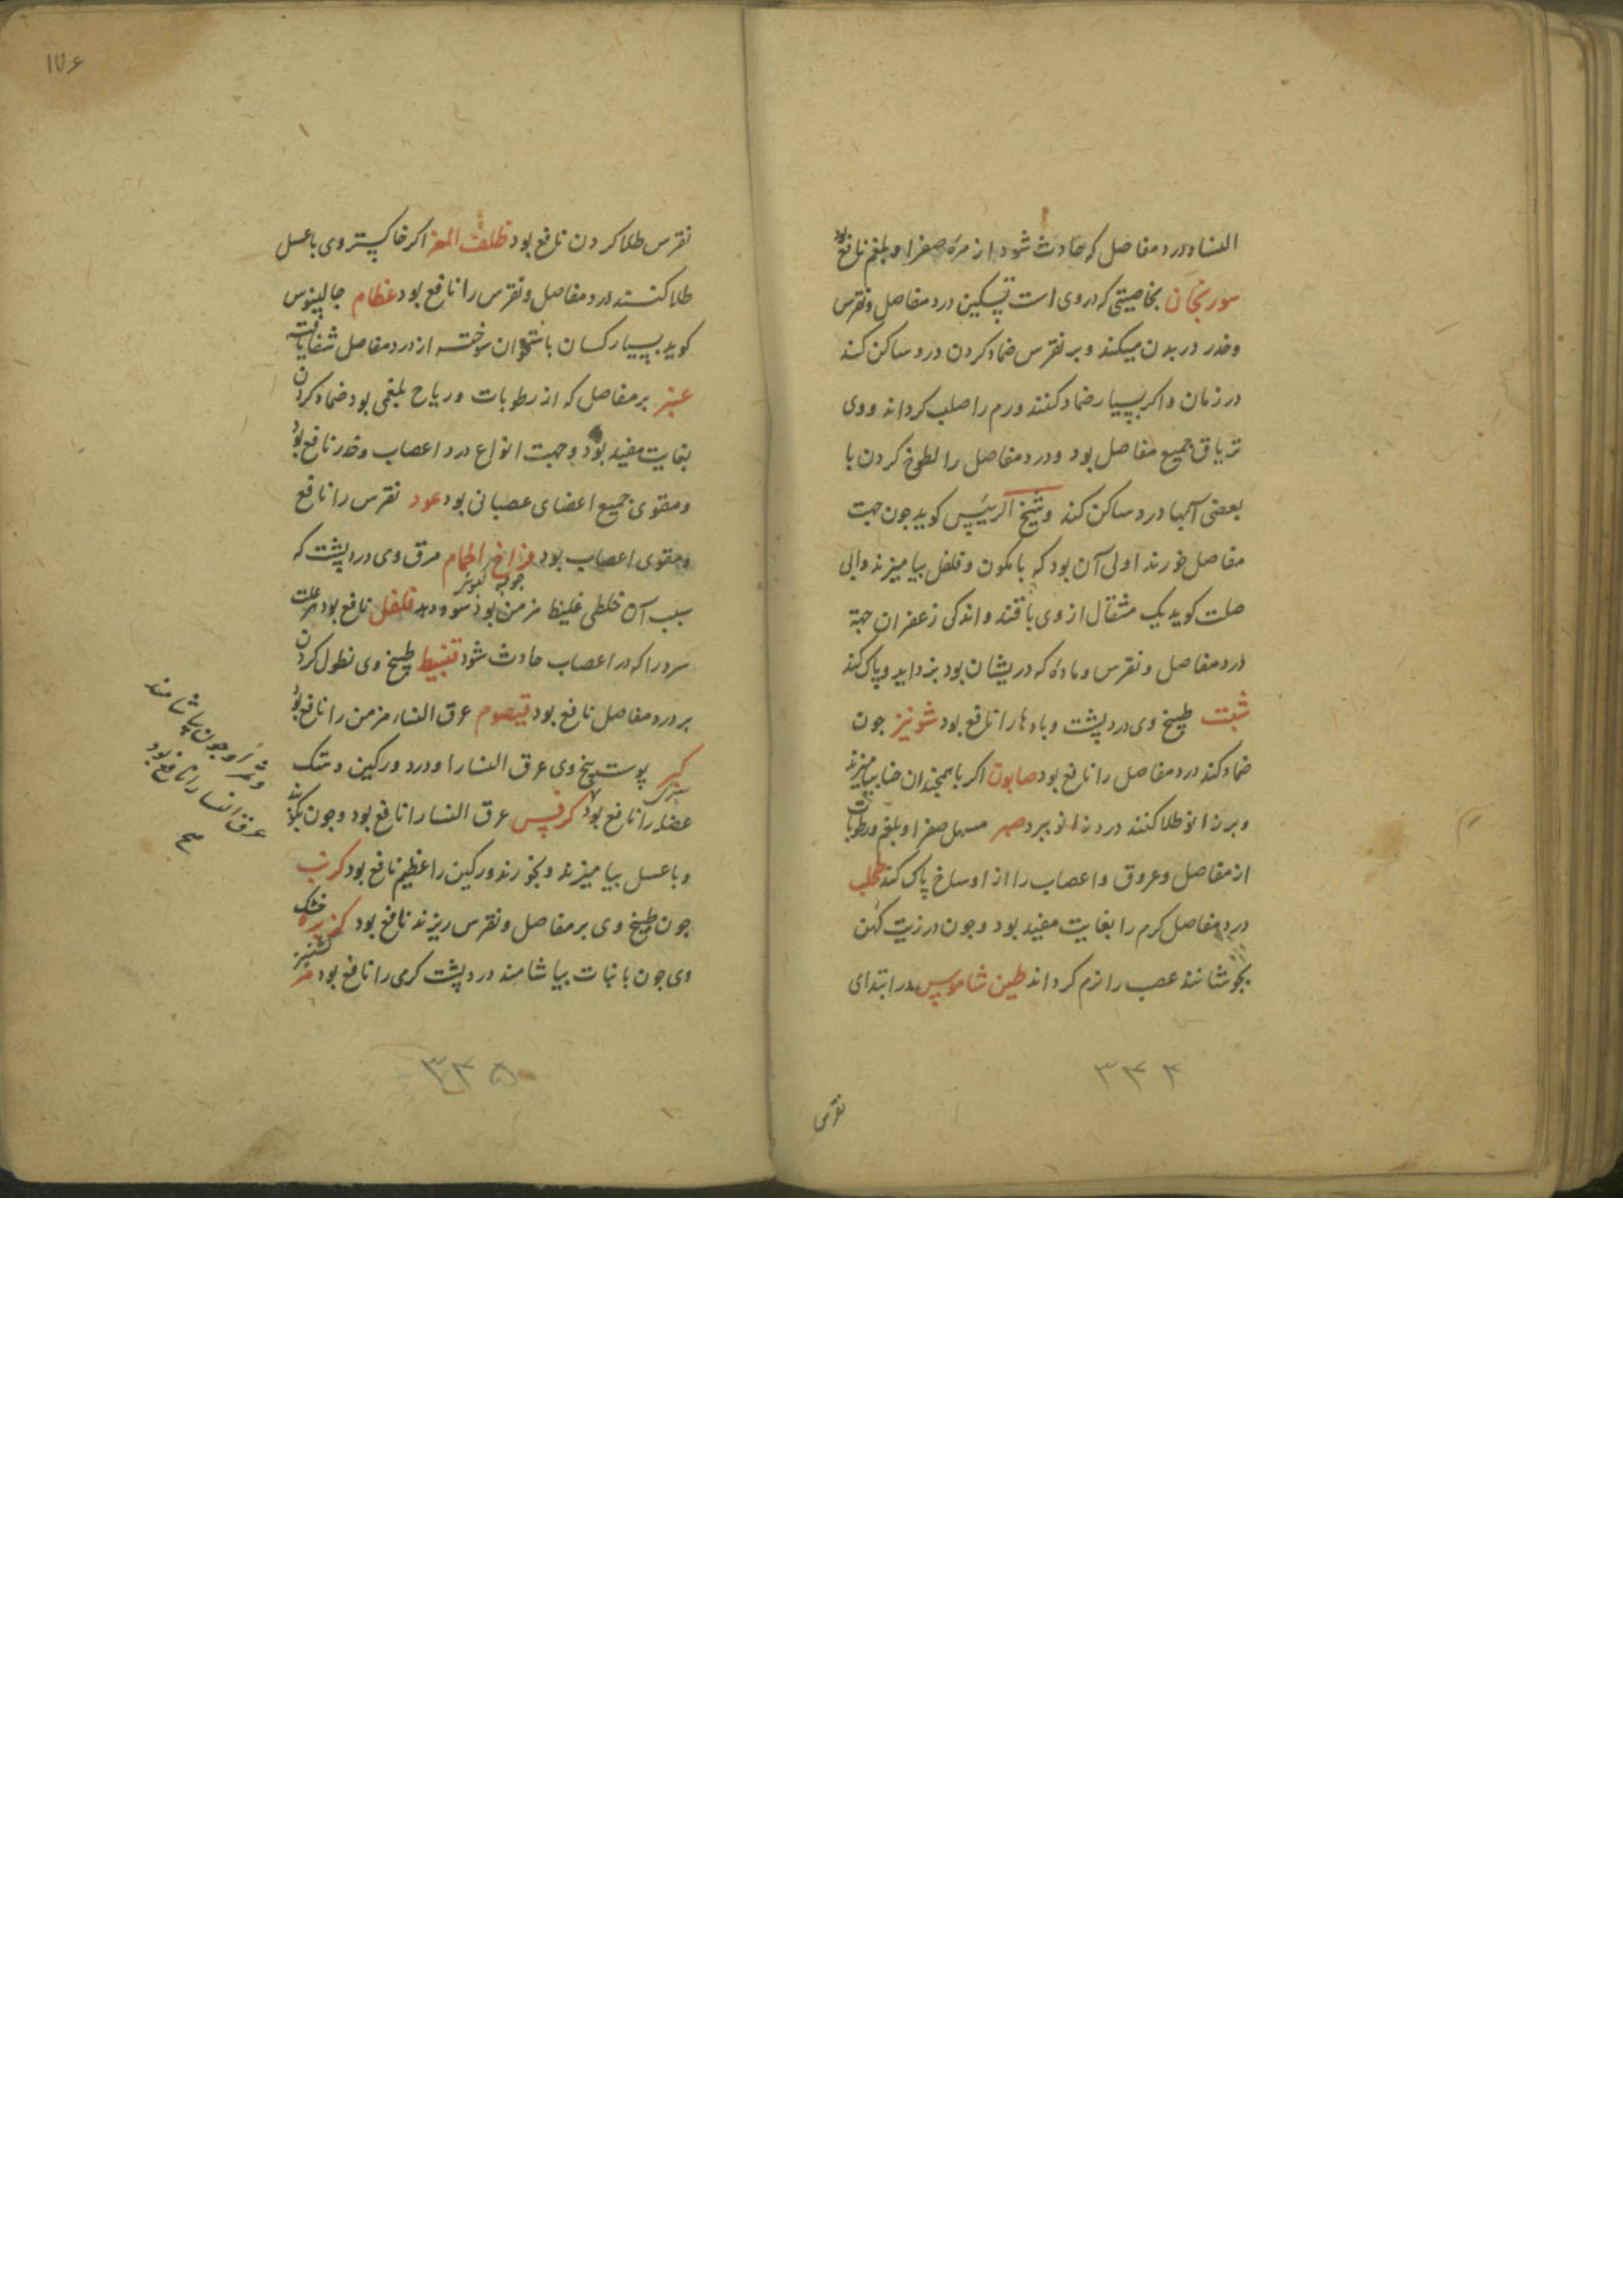 النسا و درد مفاصل که حادث شود از مرّه صفرا و بلغم نافع بود
سورنجان بخاصیتی که در وی است تسکین درد مفاصل و نقرس
و خدر در بدن میکند و بر نقرس ضماد کردن درد ساکن کند
در زمان و اکر بسیار ضماد کنند ورم را صلب کرداند و وی
تریاق جمیع مفاصل بود و درد مفاصل را لطوخ کردن با
بعضی آبها درد ساکن کند و شیخ الرییس کوید جون جهت
مفاصل خورند اولی آن بود که با کمون و فلفل بیامیزند و ابی
صلت کوید یک مثقال از وی با قند و اندکی زعفران جهة
درد مفاصل و نقرس و ماده که در یشان بود بزداید و پاک کند
شبت طبیخ وی درد پشت و بادها را نافع بود شونیز جون
ضماد کند درد مفاصل را نافع بود صابون اکر با همچندان حنا بیامیزند
و بر زانو طلا کنند درد زانو ببرد صبر مسهل صفرا و بلغم و رطوبات
از مفاصل و عروق و اعصاب را از اوساخ پاک کند طحلب
درد مفاصل کرم را بغایت مفید بود و جون در زیت کهن
بجوشانند عصب را نرم کرداند طین شاموس در ابتدای
۳۴۴
نقرس
۱۷۶
نقرس طلا کردن نافع بود ظلف المعز اکر خاکستر وی با عسل
طلا کنند درد مفاصل و نقرس را نافع بود عظام جالینوس
کوید بسیار کسان باستخوان سوخته از درد مفاصل شفا یافته
عنبر بر مفاصل که از رطوبات و ریاح بلغمی بود ضماد کردن
بغایت مفید بود و جهت انواع درد اعصاب و خدر نافع بود
و مقوی جمیع اعضای عصبانی بود عود نقرس را نافع
و مقوی اعصاب بود فراخ الحمام مرق وی درد پشت که
جوجه کبوتر
سبب آن خلطی غلیظ مزمن بود سود دهد فلفل نافع بود هر علت
سرد را که در اعصاب حادث شود قنبیط طبیخ وی نطول کردن
بر درد مفاصل نافع بود قیصوم عرق النساء مزمن را نافع بود
کبر پوست بیخ وی عرق النسا را و درد ورکین و هتک
عضل را نافع بود کرفس عرق النسا را نافع بود و جون بکوبند
و با عسل بیامیزند و بخورند ورکین را عظیم نافع بود کرنب
جون طبیخ وی بر مفاصل و نقرس ریزند نافع بود کزبره خشک
کشنیز
وی جون با نبات بیاشامند درد پشت کرمی را نافع بود مر
و ثمر و جون بیاشامند
عرق النسا را نافع بود
صح
۳۴۵